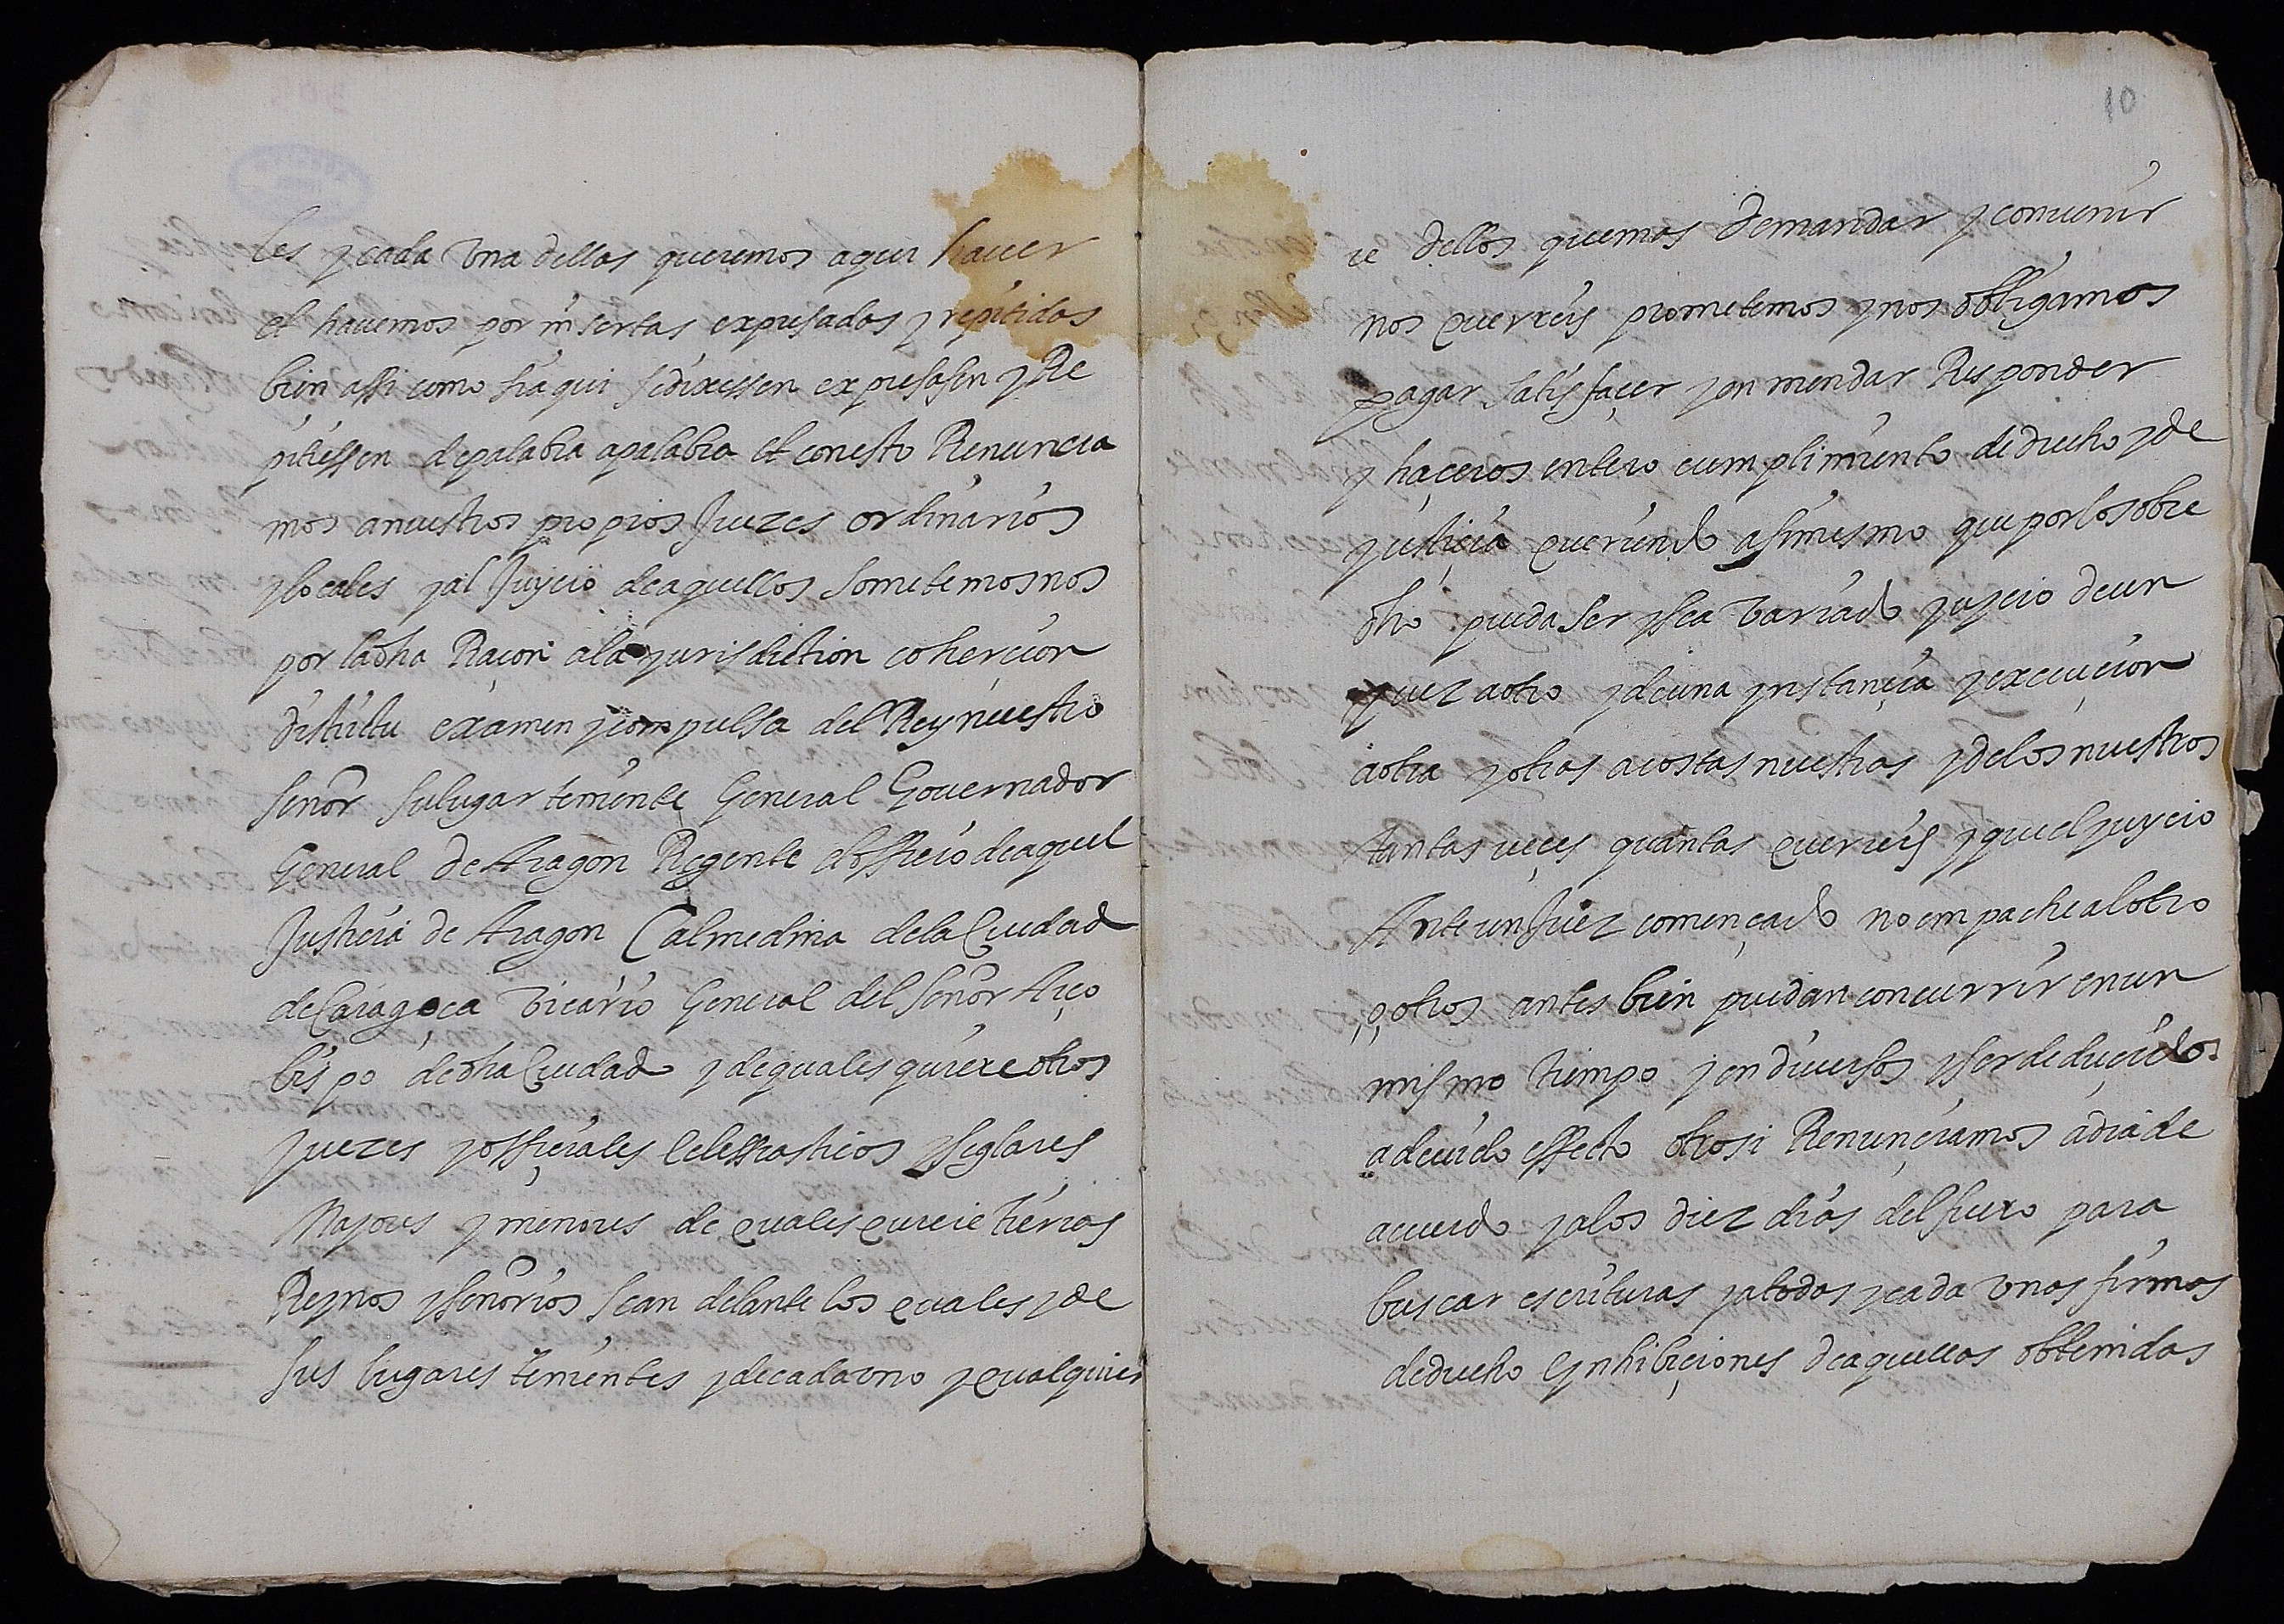 les y cada una dellas queremos aqui hauer
et hauemos por insertas expresadas y repitidas
bien assi como si aqui se dixessen expresasen y Re
pitiessen de palabra a palabra et con esto Renuncia
mos a nuestros propios Juezes ordinarios
y locales y al Juycio de aquellos sometemos nos
por la dha Raçon a la jurisdiction cohercion
districtu examen y compulsa del Rey nuestro
señor su lugar teniente General Gouernador
General de Aragon Regente el officio de aquel
Justicia de Aragon Çalmedina de la Ciudad
de Caragoça Vicario General del señor Arço
bispo de dha Ciudad y de quales quiere otros
juezes y officiales eclessiasticos y seglares
Mayores y menores de quales quiere tierras
Reynos y señorios sean delante los quales y de
sus lugares tenientes y de cada uno y qualquie
10
re dellos quemas demandar y conuenir
nos querreis prometemos y nos obligamos
pagar satisfaçer y en mendar Responder
y haçeros entero cumplimiento de drecho y de
justicia queriendo asi mesmo que por lo sobre
dho pueda ser y sea variado juycio de un
juez a otro y de una ynstançia y execuçion
a otra y otras a costas nuestras y de los nuestros
tantas ueçes quantas querreis y que el juycio
Ante un Juez començado no em pache al otro
o otros antes bien puedan concurrir en un
mismo tiempo y en diuersos y ser deduçidos
a deuido effecto otro si Renunçiamos a dia de
acuerdo y a los diez dias del fuero para
buscar escrituras y a todas y cada unas firmas
de drecho e ynhibiçiones de aquellas obtenidas